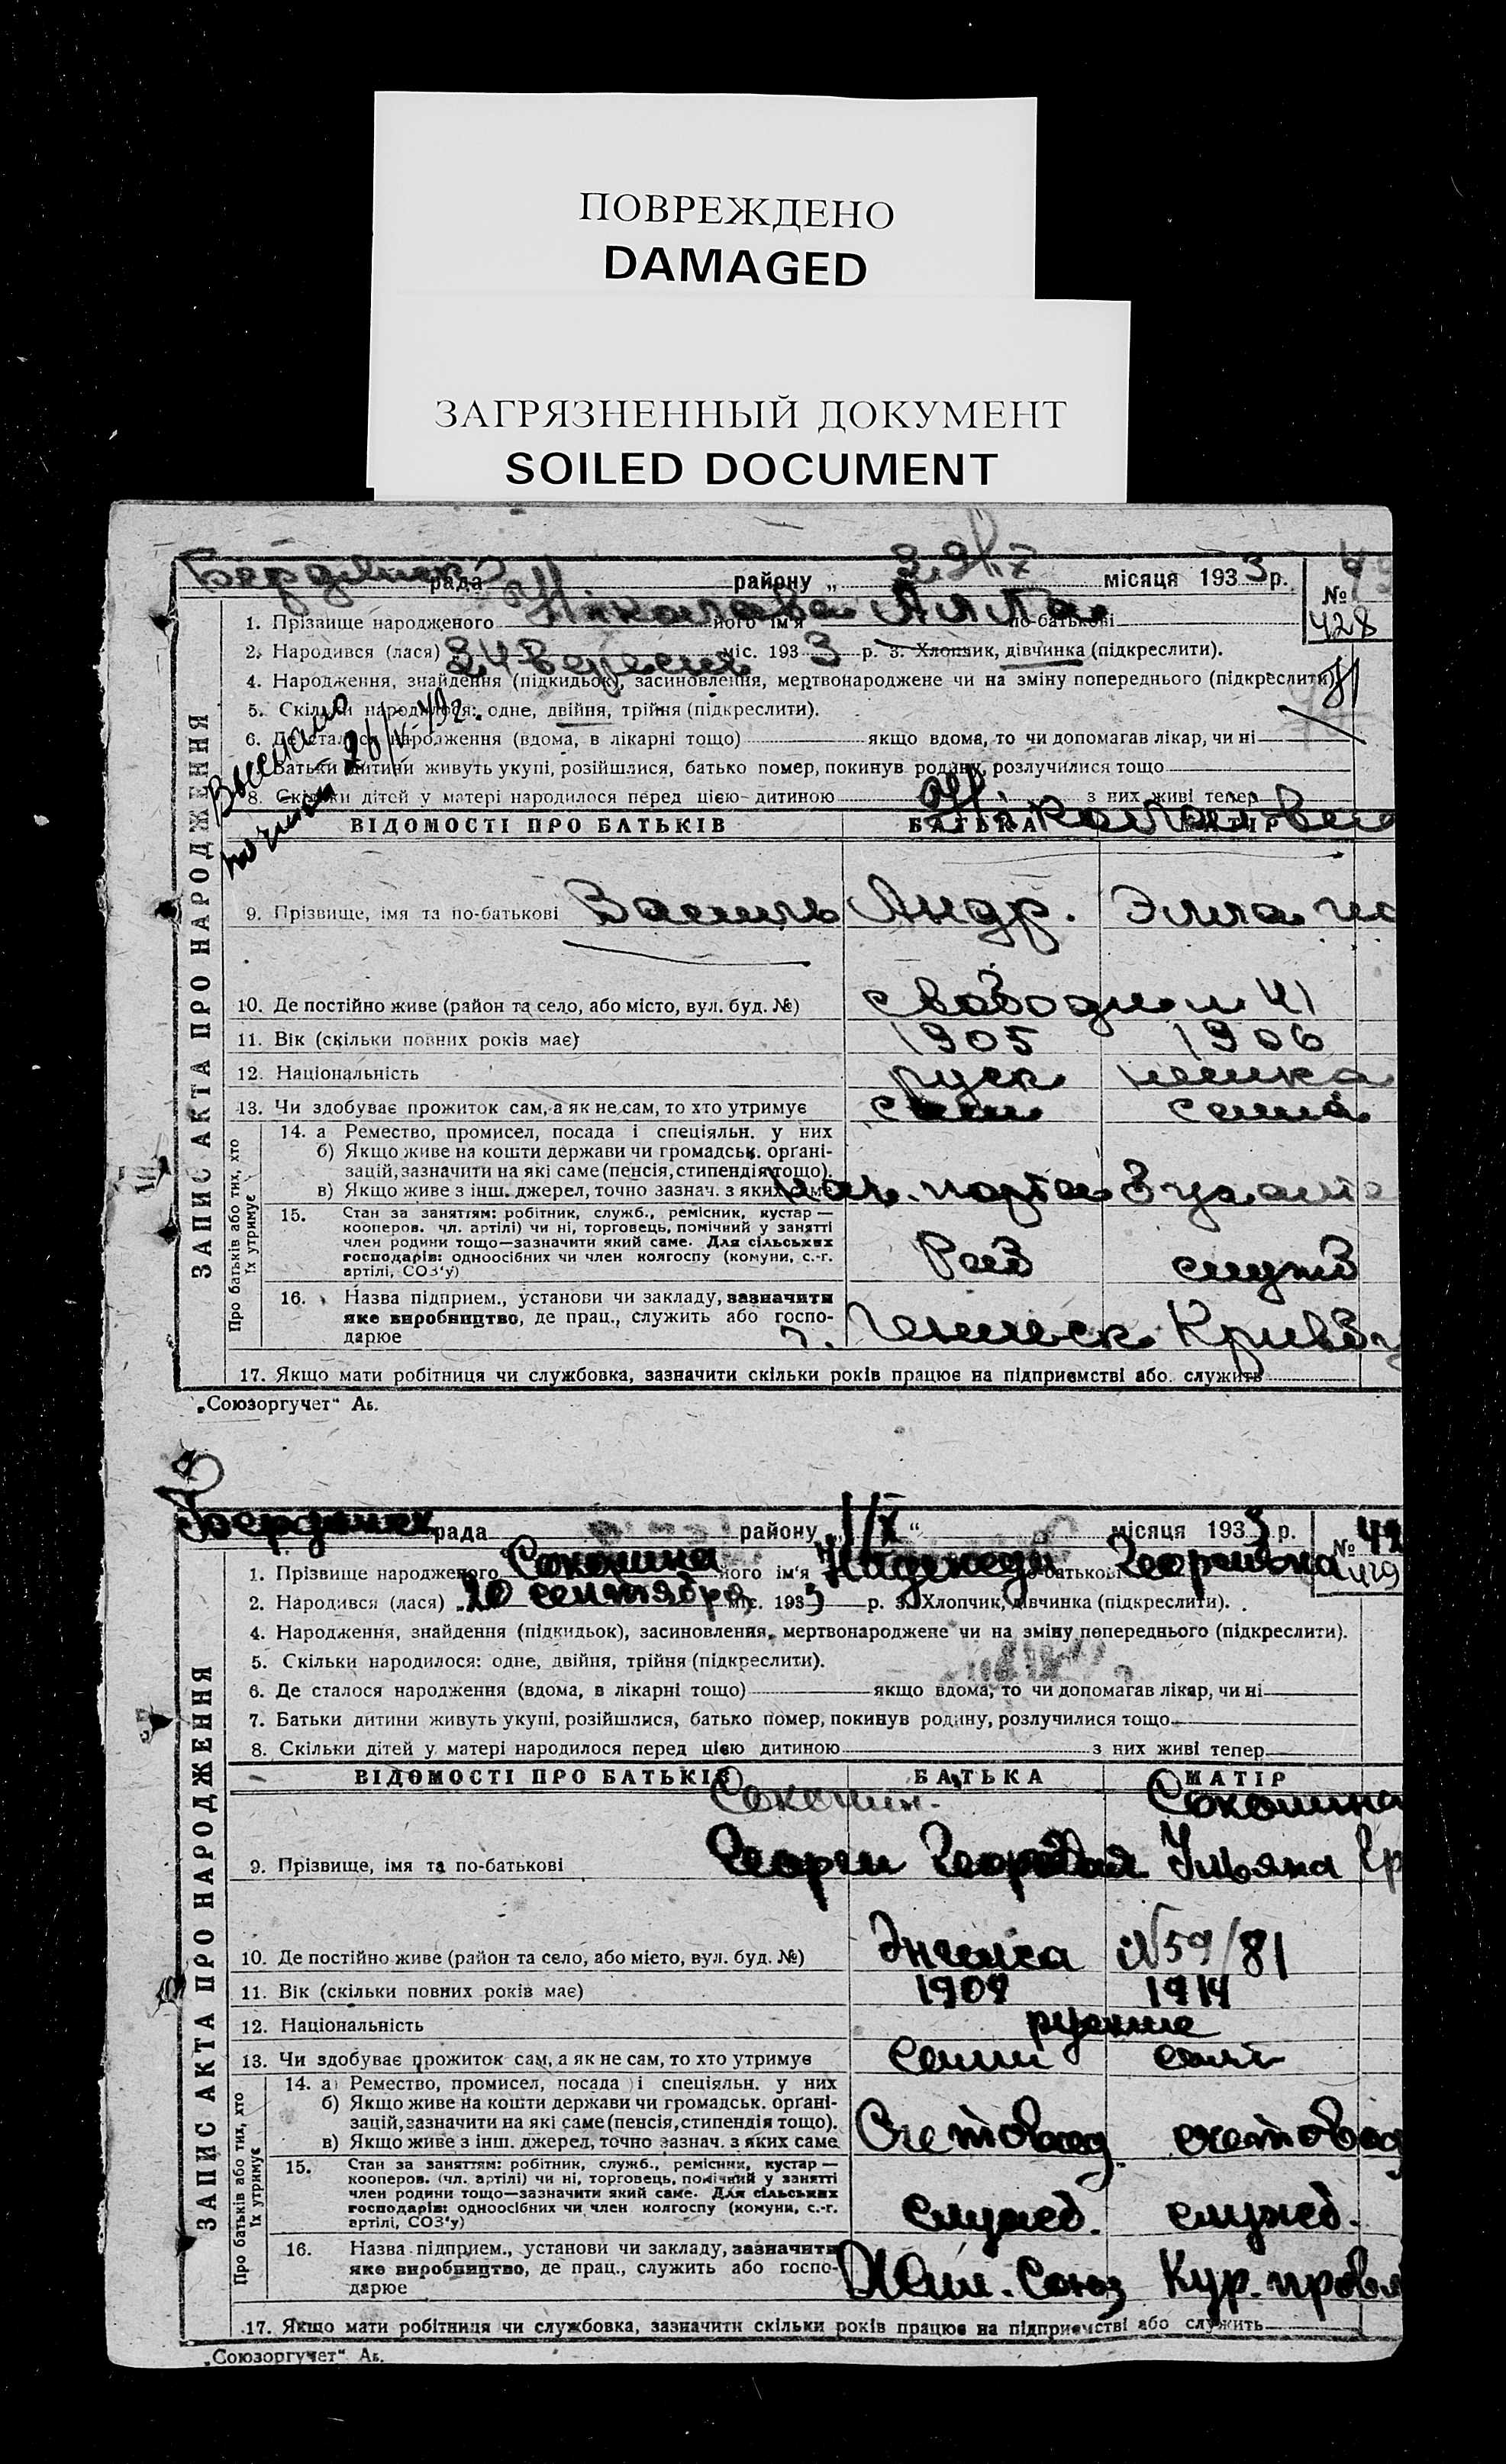 ПОВРЕЖДЕНО
DAMAGED
ЗАГРЯЗНЕННЫЙ ДОКУМЕНТ
SOILED DOCUMENT
Бердянск рада району „ місяця 1933 р. №
1. Прізвище народженого його ім'я Алла по-батькові 428
2. Народився (лася) 24 вересня міс. 1933 р. 3. Хлопчик, дівчинка (підкреслити).
4. Народження, знайдення (підкидьок), засиновлення, мертвонароджене чи на зміну попереднього (підкреслити).
5. Скільки народилося: одне, двійня, трійня (підкреслити).
6. Де сталося народження (вдома, в лікарні тощо) якщо вдома, то чи допомагав лікар, чи ні
Батьки дитини живуть укупі, розійшлися, батько помер, покинув родину, розлучилися тощо
8. Скільки дітей у матері народилося перед цією дитиною з них живі тепер
ВІДОМОСТІ ПРО БАТЬКІВ БАТЬКА МАТІР
9. Прізвище, імя та по-батькові Василь Андр. Элла
10. Де постійно живе (район та село, або місто, вул. буд. №) 41
11. Вік (скільки повних років має) 1905 1906
12. Національність руск немка
13. Чи здобуває прожиток сам, а як не сам, то хто утримує сам сама
14. а Ремество, промисел, посада і спеціяльн. у них
б) Якщо живе на кошти держави чи громадськ. органі-
зацій, зазначити на які саме (пенсія, стипендія тощо).
в) Якщо живе з інш. джерел, точно зазнач. з яких саме порта
15. Стан за заняттям: робітник, служб., ремісник, кустар —
кооперов. чл. артілі) чи ні, торговець, помічний у занятті
член родини тощо—зазначити який саме. Для сільських
господарів: одноосібних чи член колгоспу (комуни, с.-г.
артілі, СОЗ'у) Раб служб
16. Назва підприєм., установи чи закладу, зазначити
яке виробництво, де прац., служить або госпо-
дарює
17. Якщо мати робітниця чи службовка, зазначити скільки років працює на підприємстві або служить
ЗАПИС АКТА ПРО НАРОДЖЕННЯ
Про батьків або тих, хто
їх утримує
„Союзоргучет" Аб.
Бердянск рада району „ “ місяця 1933 р. №
1. Прізвище народженого Соколина його ім'я Надежда по-батькові Георгиевна 429
2. Народився (лася) 20 сентября міс. 1933 р. 3. Хлопчик, дівчинка (підкреслити).
4. Народження, знайдення (підкидьок), засиновлення, мертвонароджене чи на зміну попереднього (підкреслити).
5. Скільки народилося: одне, двійня, трійня (підкреслити).
6. Де сталося народження (вдома, в лікарні тощо) якщо вдома, то чи допомагав лікар, чи ні
7. Батьки дитини живуть укупі, розійшлися, батько помер, покинув родину, розлучилися тощо
8. Скільки дітей у матері народилося перед цією дитиною з них живі тепер
ВІДОМОСТІ ПРО БАТЬКІВ БАТЬКА МАТІР
Соколин. Соколина
9. Прізвище, імя та по-батькові Георги Ульяна
10. Де постійно живе (район та село, або місто, вул. буд. №) Энгельса № 59/81
11. Вік (скільки повних років має) 1914
12. Національність русские
13. Чи здобуває прожиток сам, а як не сам, то хто утримує
14. а) Ремество, промисел, посада і спеціяльн. у них
б) Якщо живе на кошти держави чи громадськ. органі-
зацій, зазначити на які саме (пенсія, стипендія тощо).
в) Якщо живе з інш. джерел, точно зазнач. з яких саме Счетовод счетовод
15. Стан за заняттям: робітник, служб., ремісник, кустар —
кооперов. (чл. артілі) чи ні, торговець, помічний у занятті
член родини тощо—зазначити який саме. Для сільських
господарів: одноосібних чи член колгоспу (комуни, с.-г.
артілі, СОЗ'у) служб. служб.
16. Назва підприєм., установи чи закладу, зазначити
яке виробництво, де прац., служить або госпо- Союз Кур.
дарює
17. Якщо мати робітниця чи службовка, зазначити скільки років працює на підприємстві або служить
ЗАПИС АКТА ПРО НАРОДЖЕННЯ
Про батьків або тих, хто
їх утримує
„Союзоргучет" Аб.